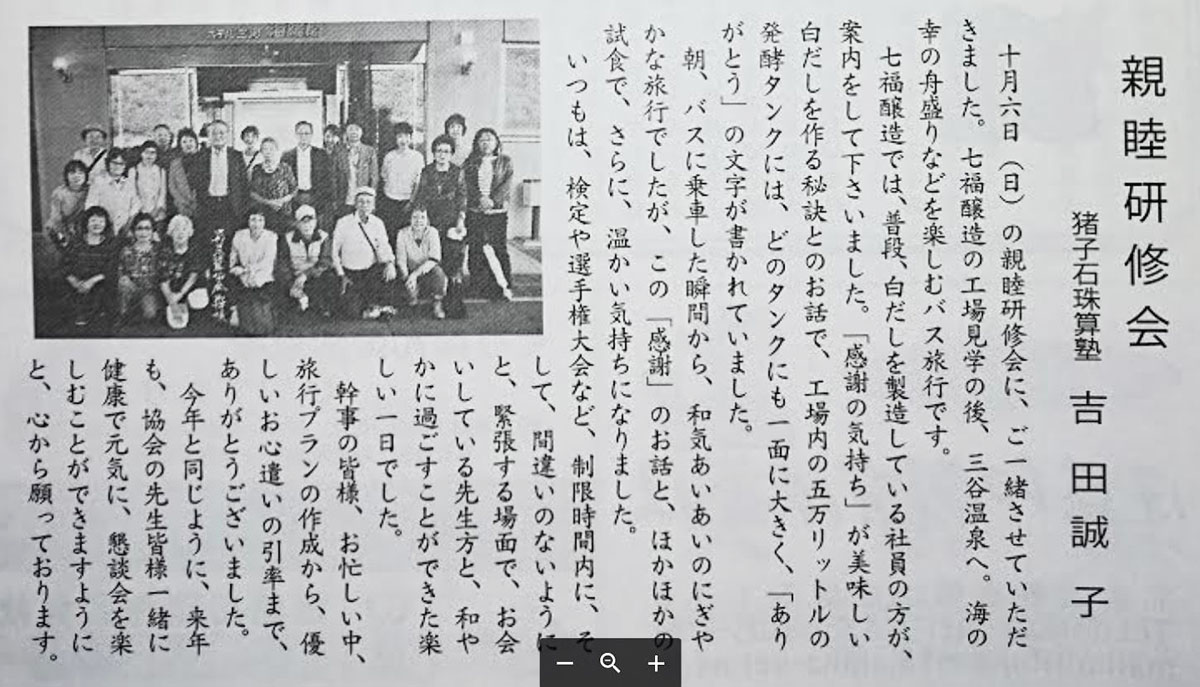 親睦研修会
猪子石珠算塾 吉田誠子
十月六日（日）の親睦研修会に、ご一緒させていただ
きました。七福醸造の工場見学の後、三谷温泉へ。海の
幸の舟盛りなどを楽しむバス旅行です。
七福醸造では、普段、白だしを製造している社員の方が、
案内をして下さいました。「感謝の気持ち」が美味しい
白だしを作る秘訣とのお話で、工場内の五万リットルの
発酵タンクには、どのタンクにも一面に大きく、「あり
がとう」の文字が書かれていました。
朝、バスに乗車した瞬間から、和気あいあいのにぎや
かな旅行でしたが、この「感謝」のお話と、ほかほかの
試食で、さらに、温かい気持ちになりました。
いつもは、検定や選手権大会など、制限時間内に、そ
して、間違いのないように
と、緊張する場面で、お会
いしている先生方と、和や
かに過ごすことができた楽
しい一日でした。
幹事の皆様、お忙しい中、
旅行プランの作成から、優
しいお心遣いの引率まで、
ありがとうございました。
今年と同じように、来年
も、協会の先生皆様一緒に
健康で元気に、懇談会を楽
しむことができますように
と、心から願っております。